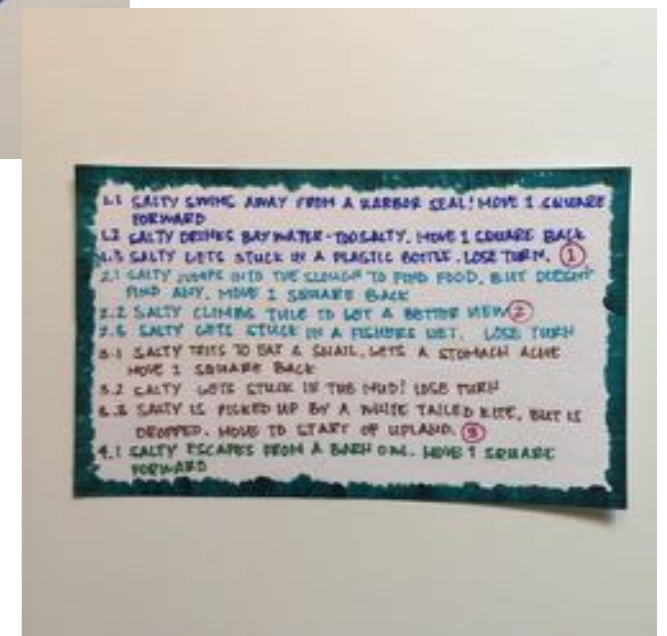 1.1 SALTY SWIMS AWAY FROM A HARBOR SEAL! MOVE 1 SQUARE
FORWARD
1.2 SALTY DRINKS BAY WATER - TOO SALTY. MOVE 1 SQUARE BACK
1.3 SALTY GETS STUCK IN A PLASTIC BOTTLE. LOSE TURN. 1
2.1 SALTY JUMPS INTO THE SLOUGH TO FIND FOOD, BUT DOESN'T
FIND ANY. MOVE 1 SQUARE BACK
2.2 SALTY CLIMBS TULE TO GET A BETTER VIEW 2
2.3 SALTY GETS STUCK IN A FISHERS NET. LOSE TURN
3.1 SALTY TRIES TO EAT A SNAIL, GETS A STOMACH ACHE
MOVE 1 SQUARE BACK
3.2 SALTY GETS STUCK IN THE MUD! LOSE TURN
3.3 SALTY IS PICKED UP BY A WHITE TAILED KITE, BUT IS
DROPPED. MOVE TO START OF UPLAND. 3
4.1 SALTY ESCAPES FROM A BARN OWL. MOVE 1 SQUARE
FORWARD